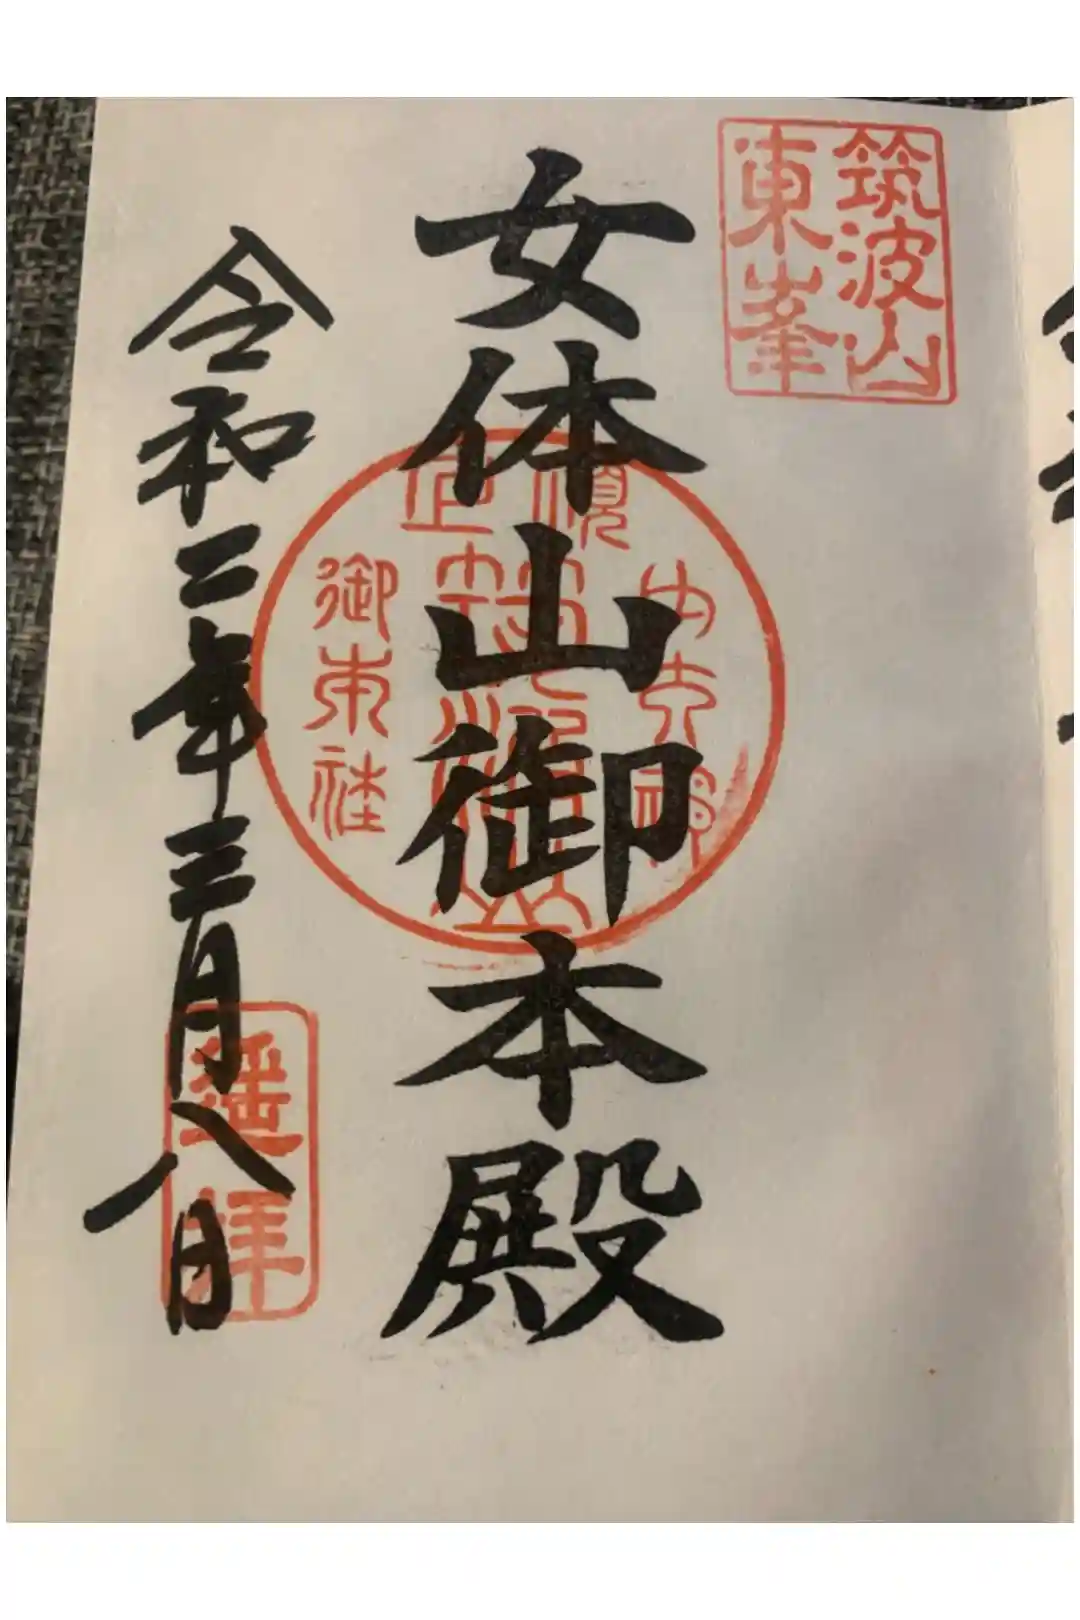 筑波山
東峯
女体山御本殿
御本社
令和二年三月八日
遥拝